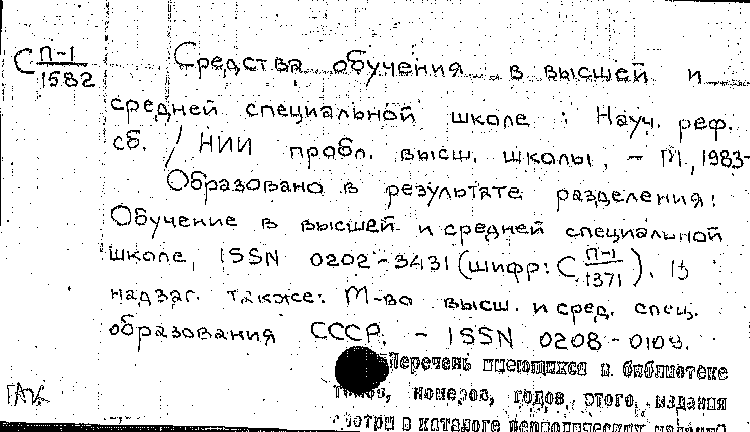 С П-1
1582
Средства обучения в высшей и
средней специальной школе : Науч. реф.
сб. / НИИ пробл. высш. школы, – М., 1983-
Образовано в результате разделения:
Обучение в высшей и средней специальной
школе, ISSN 0202-3431 (шифр: С П-1
1371). В
надзаг. также: М-во высш. и сред. спец.
образования СССР. – ISSN 0208-0108.
Перечень имеющихся в библиотеке
томов, номеров, годов этого издания
смотри в каталоге периодических изданий